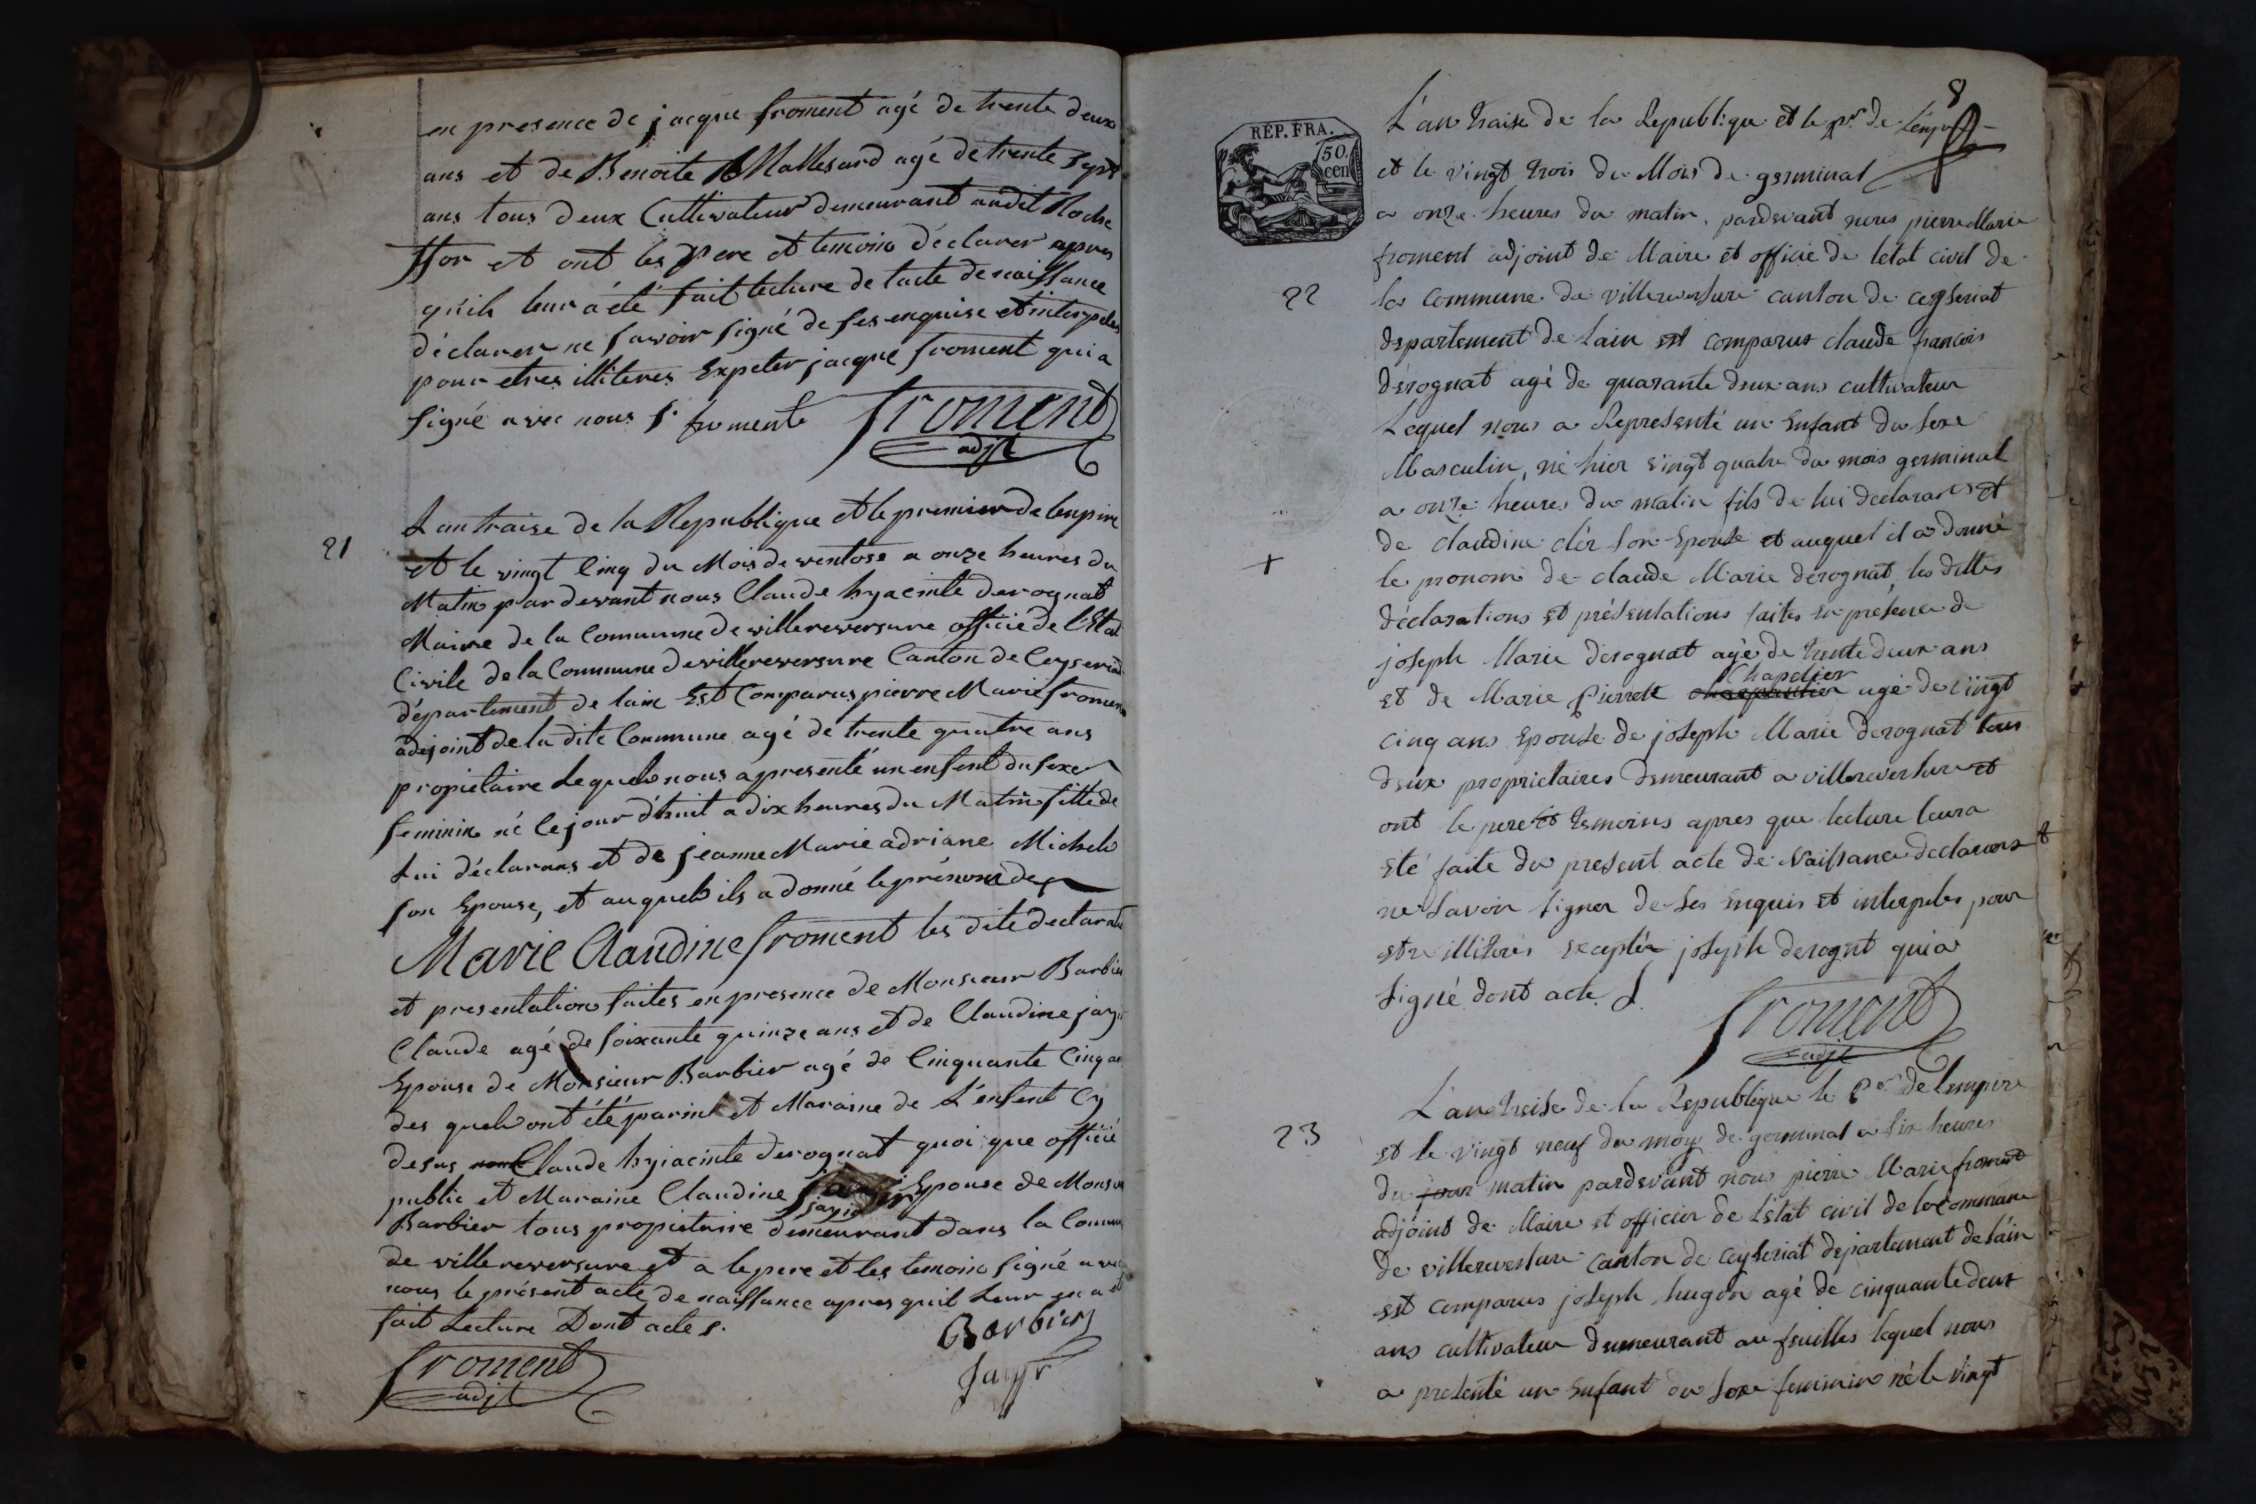 en presence de jacque froment agé de trente deux
ans et de Benoite Mallesard agé de trente sept
ans tous deux Cultivateur demeurant audit Roche
ffor et ont les pere et temoins déclarer apres
quils leur á été fait lecture de lacte de naissance
déclarer ne savoir signé de ses enquise et interpeles
pour etres illiteres Expeter jacque froment qui a
signé avec nous f. froment
froment
adjt
21
Lan traise de la Republique et le premier de lenpire
et le vingt Cinq du Mois de ventose a onze heures du
Matin par devant nous Claude hyacinte derognat
Maire de la Commune de villereversure officié de l'Etat
Civile de la Commune de villereversure Canton de Ceyseriat
département de lain Est Comparus pierre Marie froment
adejoint de la dite Commune agé de trente quatre ans
propietaire Lequels nous a presenté un enfent du sexe
feminin né le jour d'huit a dix heures du Matin fille de
Lui déclarans et de jeanne Marie adriane Michels
son Epouse, et auquels ils a donné le prénoms de
Marie Claudine froment les dite declarat
et presentations faites en presence de Monsieur Barbier
Claude agé de soixante quinze ans et de Claudine jay
Epouse de Monsieur Barbier agé de Cinquante Cinq a
des quels ont été parint et Maraine de L'enfent Cy
desus Claude hyiacinte derognat quoi que officié
public et Maraine Claudine Epouse de Monsi
Barbier tous propietaire demeurant dans la Comun
de villereversure et a le pere et les temoins signé avec
nous le présent acte de naissance apres quil Leur en a été
fait Lecture Dont acte f.
Barbier
froment
adjt
8
REP. FRA.
50.
cen
L'an traise de la Republique et le pr de L'enpire
et le vingt trois du Mois de germinal
a onze heures du matin, pardevant nous pierre Marie
froment adjoint de Maire et officié de letat civil de
22
la commune de villereversure canton de ceyseriat
departement de Lain est comparus claude francois
dérognat agé de quarante deux ans cultivateur
Lequel nous a Representé un Enfant du sexe
Masculin, né hier vingt quatre du mois germinal
a onze heures du matin fils de lui declarant et
de claudine clér son Epouse et auquel il a donné
+
le pronom de claude Marie derognat, les dittes
déclarations et présentations faites en présence de
joseph Marie derognat agé de trente deux ans
Chapelier
et de Marie Pierrete agé de vingt
cinq ans Epouse de joseph Marie derognat tous
deux proprietaires demeurant a villereversure et
ont le pere et temoins apres que lecture leura
eté faite du present acte de Naissance declarers
ne savoir signer de ses enquis et interpeles pour
etre illiterés exceptér joseph derognt qui a
signé dont acte f.
froment
adjt
L'an treise de la Republique le Per de lempire
23
et le vingt neuf du moy de germinal a six heures
du jour matin pardevant nous pierre Marie froment
adjoint de Maire et officier de l'état civil de la commune
de villereversure canton de ceyseriat departement de lain
est comparus joseph hugon agé de cinquante deux
ans cultivateur demeurant au feuilles lequel nous
a presenté un Enfant du sexe feminin né le vingt